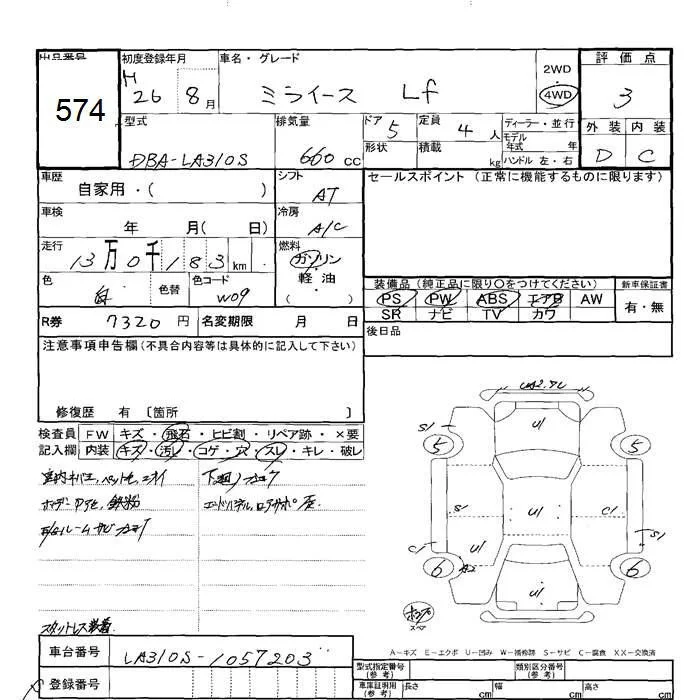 出品番号 初度登録年月 車名・グレード 評価点
574
H 26 8月 ミライース Lf 2WD 4WD 3
型式 排気量 ドア 5 定員 4人 ディーラー・並行 外装 内装
形状 積載 kg モデル年式 年
DBA-LA310S 660cc ハンドル 左・右 D C
車歴 シフト セールスポイント (正常に機能するものに限ります)
自家用・( ) AT
車検 冷房
年 月( 日) A/C
走行 燃料
13万0千183km ガソリン
色 色替 色コード 軽・油 装備品 (純正品に限り〇をつけてください) 新車保証書
白 W09 ( ) PS PW ABS エアB AW 有・無
SR ナビ TV カワ
R券 7320円 名変期限 月 日 後日品
注意事項申告欄 (不具合内容等は具体的に記入して下さい)
修復歴 有 〔箇所 〕
検査員 FW キズ・飛石・ヒビ割・リペア跡・×要
記入欄 内装 キズ・汚レ・コゲ・穴・スレ・キレ・破レ
下廻り
鉄粉
スタットレス装着
車台番号 LA310S-1057203
登録番号
U1
S1 5 5
S1 U1 C1
C1 U1 S1
6 A2 6
U1
A-キズ E-エクボ U-凹み W-補修跡 S-サビ C-腐食 XX-交換済
型式指定番号 (参考) 類別区分番号 (参考)
車庫証明用 (参考) 長さ cm 幅 cm 高さ cm